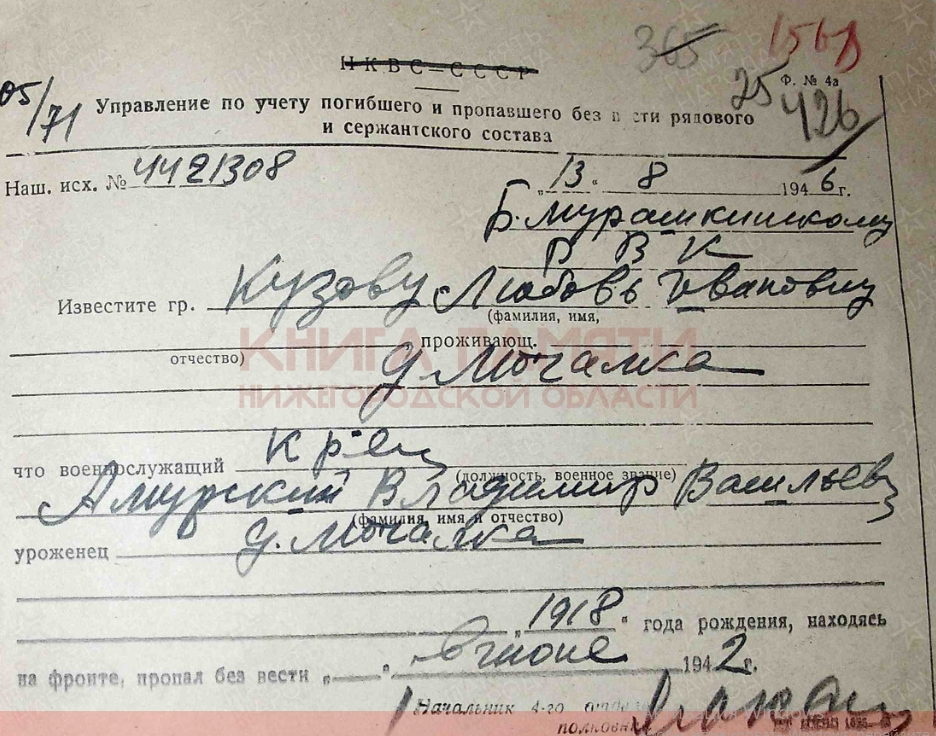 365 1568
НКВС—СССР
Ф. № 4а
05/71 25 426
Управление по учету погибшего и пропавшего без вести рядового
и сержантского состава
Наш. исх. № 4421308 „13“ 8 1946г.
Б. Мурашкинскому
РВК
Известите гр. Кузову Любовь Ивановну
(фамилия, имя,
отчество) , проживающ.
д. Мочалка
КНИГА ПАМЯТИ
НИЖЕГОРОДСКОЙ ОБЛАСТИ
что военнослужащий кр-ец
(должность, военное звание)
Амурский Владимир Васильев
(фамилия, имя и отчество)
уроженец д. Мочалка
„1918“ года рождения, находясь
на фронте, пропал без вести „ “ в июне 1942г.
Начальник 4-го отдела
полковник